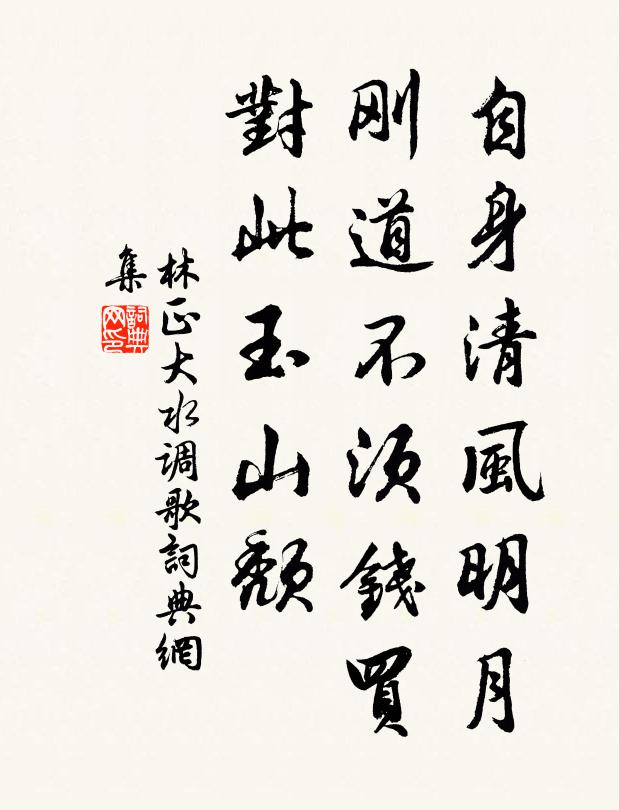 自身清風明月
刚道不須錢買
對此玉山頹
林正大水调歌詞典網
集
詞典网印